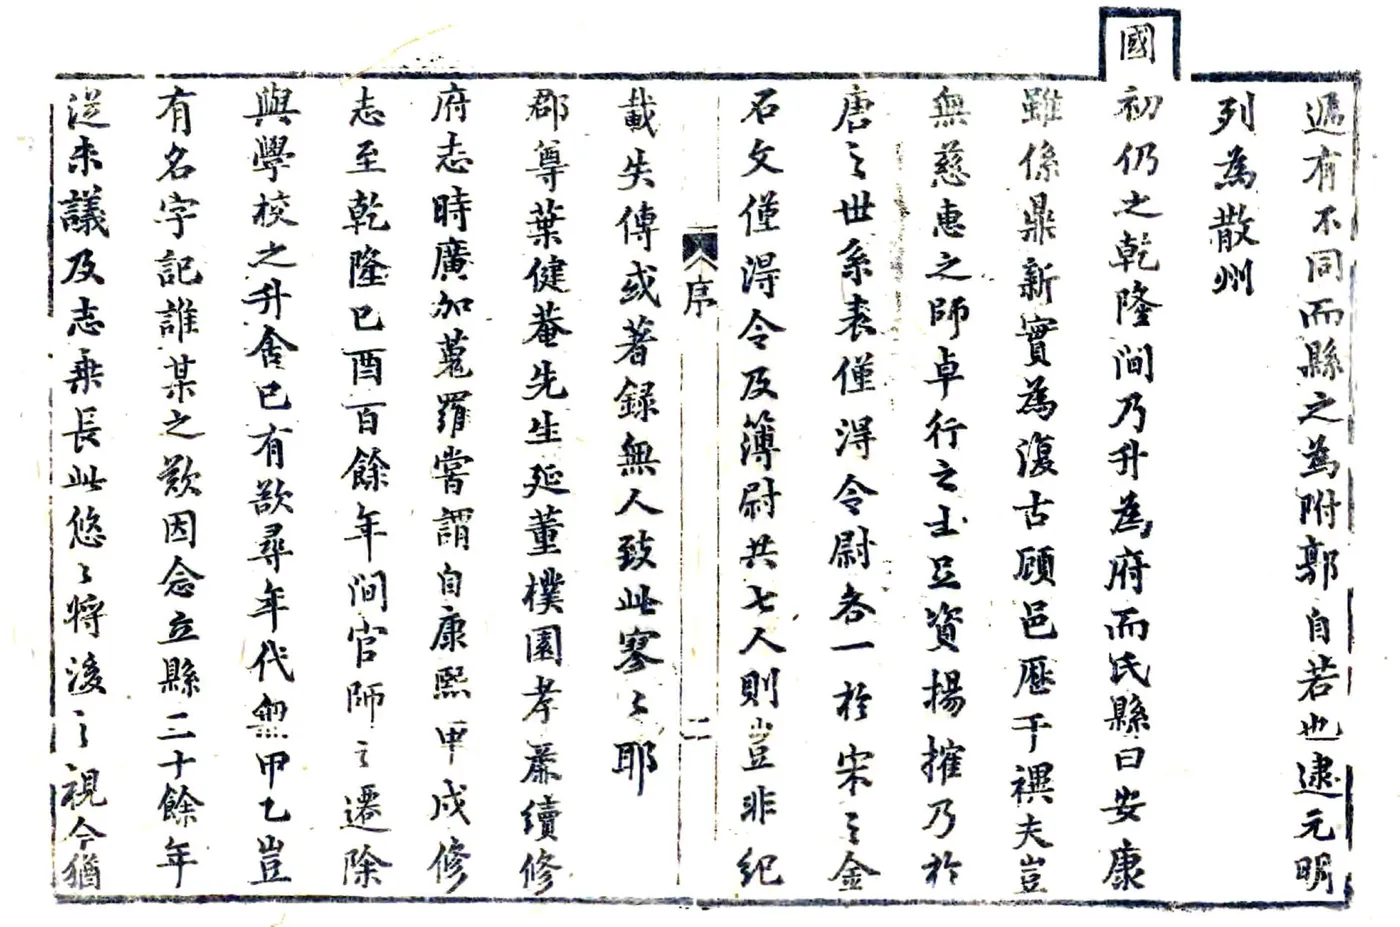 過有不同而縣之為附郭自若也逮元明
列為散州
國初仍之乾隆间乃升為府而氏縣曰安康
雖係鼎新實為復古顧邑歷千禩夫豈
無慈惠之師卓行之士足資揚搉乃於
唐之世系表僅得令尉各一於宋之金
石文僅得令及簿尉共七人則豈非紀
序
二
載失傳或著録無人致此寥〻耶
郡尊葉健菴先生延董樸園孝亷續修
府志時廣加蒐羅嘗謂自康熙甲戍修
志至乾隆已酉百餘年间官師之遷除
與學校之升舍已有欲尋年代無甲乙豈
有名字記誰某之歎因念立縣三十餘年
從未議及志乗長此悠〻将後之視今猶